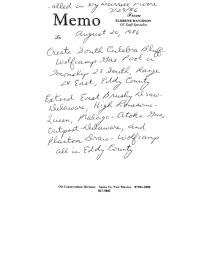 called in by Maurice Moore
7/29/86
From
Memo
FLORENE DAVIDSON
OC Staff Specialist
To August 20, 1986
Create South Culebra Bluff-
Wolfcamp Gas Pool in
Township 23 South, Range
28 East, Eddy County
Extend East Brushy Draw-
Delaware, High Lonesome-
Queen, Malaga-Atoka Gas,
Outpost-Delaware, and
Phantom Draw-Wolfcamp
all in Eddy County
Oil Conservation Division Santa Fe, New Mexico 87501-2088
827-5805